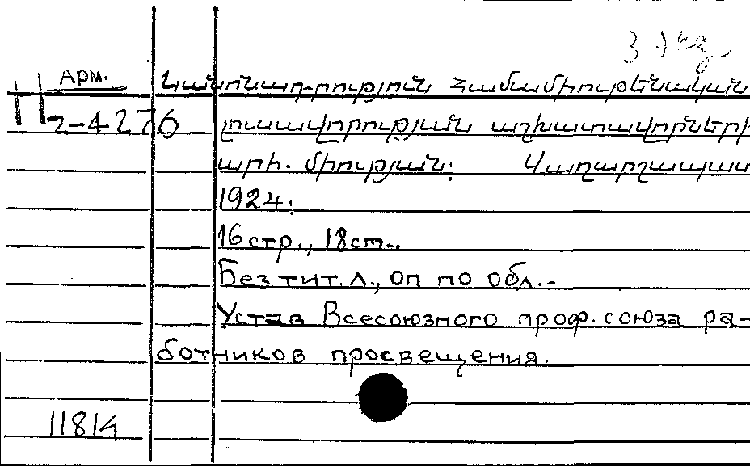 3 экз.
Арм.
2-4276
Կանոնադրություն Համամիութենական
լուսավորության աշխատավորների
արհ. միության: Վաղարշապատ
1924.
16 стр., 18 ст..
Без тит. л., оп по обл.-
Устав Всесоюзного проф. союза ра-
ботников просвещения.
11814